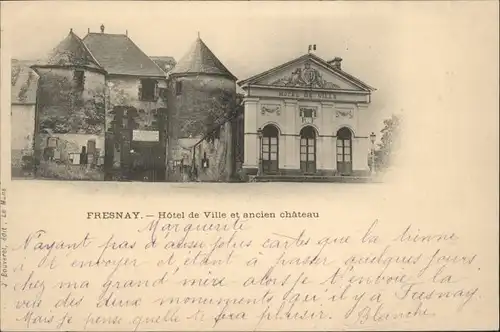 HÔTEL DE VILLE
FRESNAY. — Hôtel de Ville et ancien château
J. Bouveret, édit. : Le Mans
Marguerite
N'ayant pas d'aussi jolies cartes que la tienne
à t' envoyer et étant à passer quelques jours
chez ma grand' mère alors je t'envoie la
vue des deux monuments qu'il y a Fresnay.
Mais je pense qu'elle te fera plaisir. Blanche